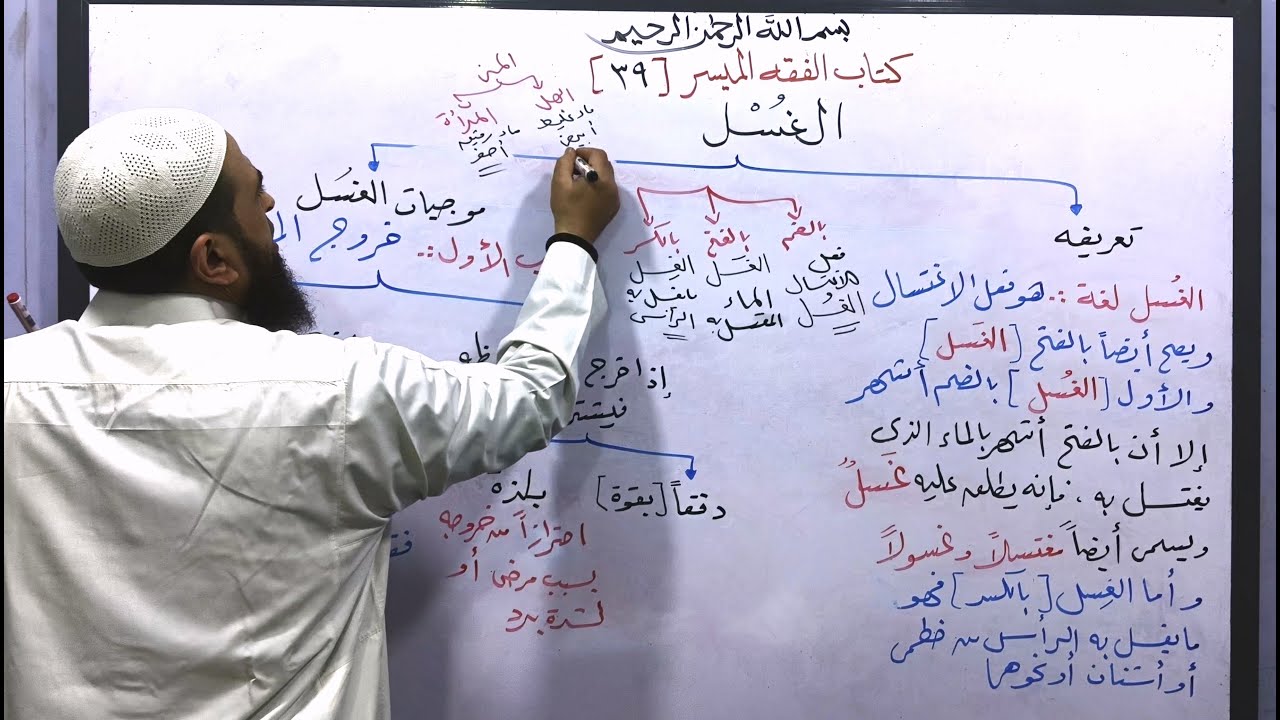 بسم الله الرحمن الرحيم
كتاب الفقه الميسر [٣٩]
الغُسْل
تعريفه
الغُسل لغة :. هو فعل الاغتسال
ويصح أيضاً بالفتح [الغَسل]
والأول [الغُسل] بالضم أشهر
إلا أن بالفتح أشهر بالماء الذي
يغتسل به ، فإنه يطلق عليه غَسلٌ
ويسمى أيضاً مغتسلاً وغسولاً
وأما الغِسل [بالكسر] فهو
ما يغسل به الرأس من خطمى
أو أشنان أو نحوها
بالضم
فعل الاغتسال
الغُسل
بالفتح
الغَسل
الماء
المغتسل به
بالكسر
الغِسل
ما يغسل به
الرأس
المني
الرجل
ماء غليظ
أبيض
المرأة
ماء رقيق
أصفر
موجبات الغسل
الأول :. خروج
إذا خرج
دفقاً [بقوة]
بلذة
احترازاً من خروجه
بسبب مرض أو
لشدة برد